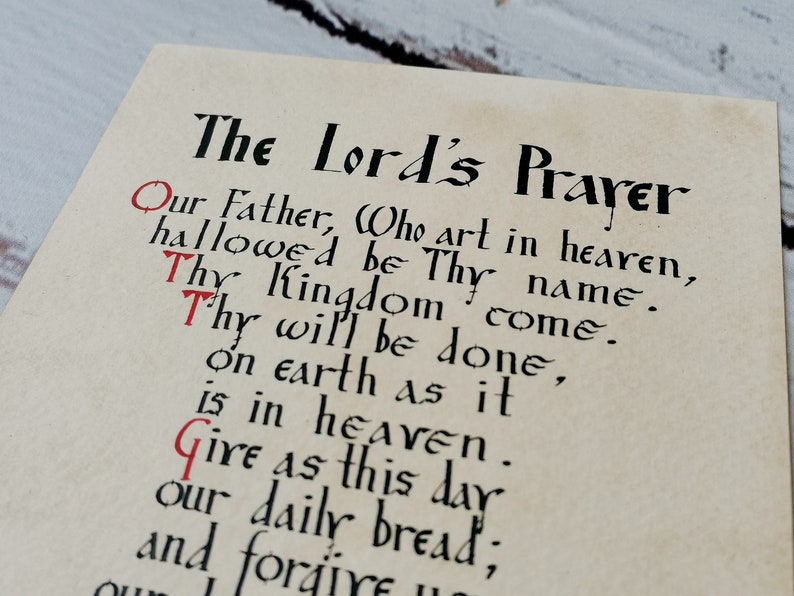 The Lord's Prayer
Our Father, Who art in heaven,
hallowed be Thy name.
Thy Kingdom come.
Thy will be done,
on earth as it
is in heaven.
Give as this day
our daily bread;
and forgive
our